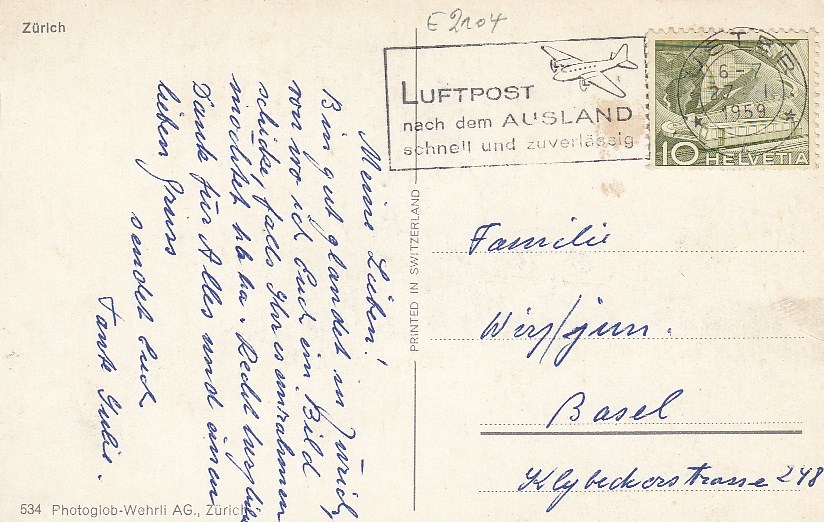 Zürich
E 2104
LUFTPOST
nach dem AUSLAND
schnell und zuverlässig
USTER
6-7
27. I.
1959
10 HELVETIA
Meine Lieben!
Bin gut glandet in Zürich,
von wo ich Euch ein Bild
schicke, falls Ihr es einrahmen
möchtet ha ha. Recht herzlich
Dank für Alles und einen
lieben Gruss
sendet Euch
Tante
PRINTED IN SWITZERLAND
Familie
jun.
Basel
Klybeckerstrasse 248
534 Photoglob-Wehrli AG., Zürich